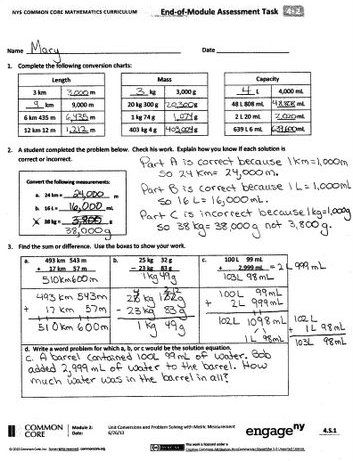 NYS COMMON CORE MATHEMATICS CURRICULUM End-of-Module Assessment Task 4•2
Name Mary Date
1. Complete the following conversion charts:
Length Mass Capacity
3 km 3,000 m 3 kg 3,000 g 4 L 4,000 mL
9 km 9,000 m 20 kg 300 g 20,300 g 48 L 808 mL 48,808 mL
6 km 435 m 6,435 m 1 kg 74 g 1,074 g 2 L 20 mL 2,020 mL
12 km 12 m 403 kg 4 g 403,004 g 639 L 6 mL
2. A student completed the problem below. Check his work. Explain how you know if each solution is
correct or incorrect.
Convert the following measurements:
a. 24 km = 24,000 m
b. 16 L = 16,000 mL
38 kg = 3,800 g
38,000 g
Part A is correct because 1 km = 1,000m
so 24 km = 24,000 m.
Part B is correct because 1 L = 1,000 mL
so 16 L = 16,000 mL.
Part C is incorrect because 1 kg = 1,000g
so 38 kg = 38,000 g not 3,800 g.
3. Find the sum or difference. Use the boxes to show your work.
a. 493 km 543 m
+ 17 km 57 m
510 km 600 m
493 km 543m
+ 17 km 57m
510 km 600 m
b. 25 kg 32 g
- 23 kg 83 g
1 kg 49 g
- 23 kg 83 g
1 kg 49 g
c. 100 L 99 mL
+ 2,999 mL = 2 L 999 mL
103L 98mL
100 L 99 mL
+ 2 L 999 mL
102 L 1098 mL
1 L 98 mL
102 L
+ 1 L 98 mL
103 L 98 mL
d. Write a word problem for which a, b, or c would be the solution equation.
c. A barrel contained 100L 99 mL of water. Bob
added 2,999 mL of water to the barrel. How
much water was in the barrel in all?
COMMON CORE
Module 2: Unit Conversions and Problem Solving with Metric Measurement
engage ny 4.S.1